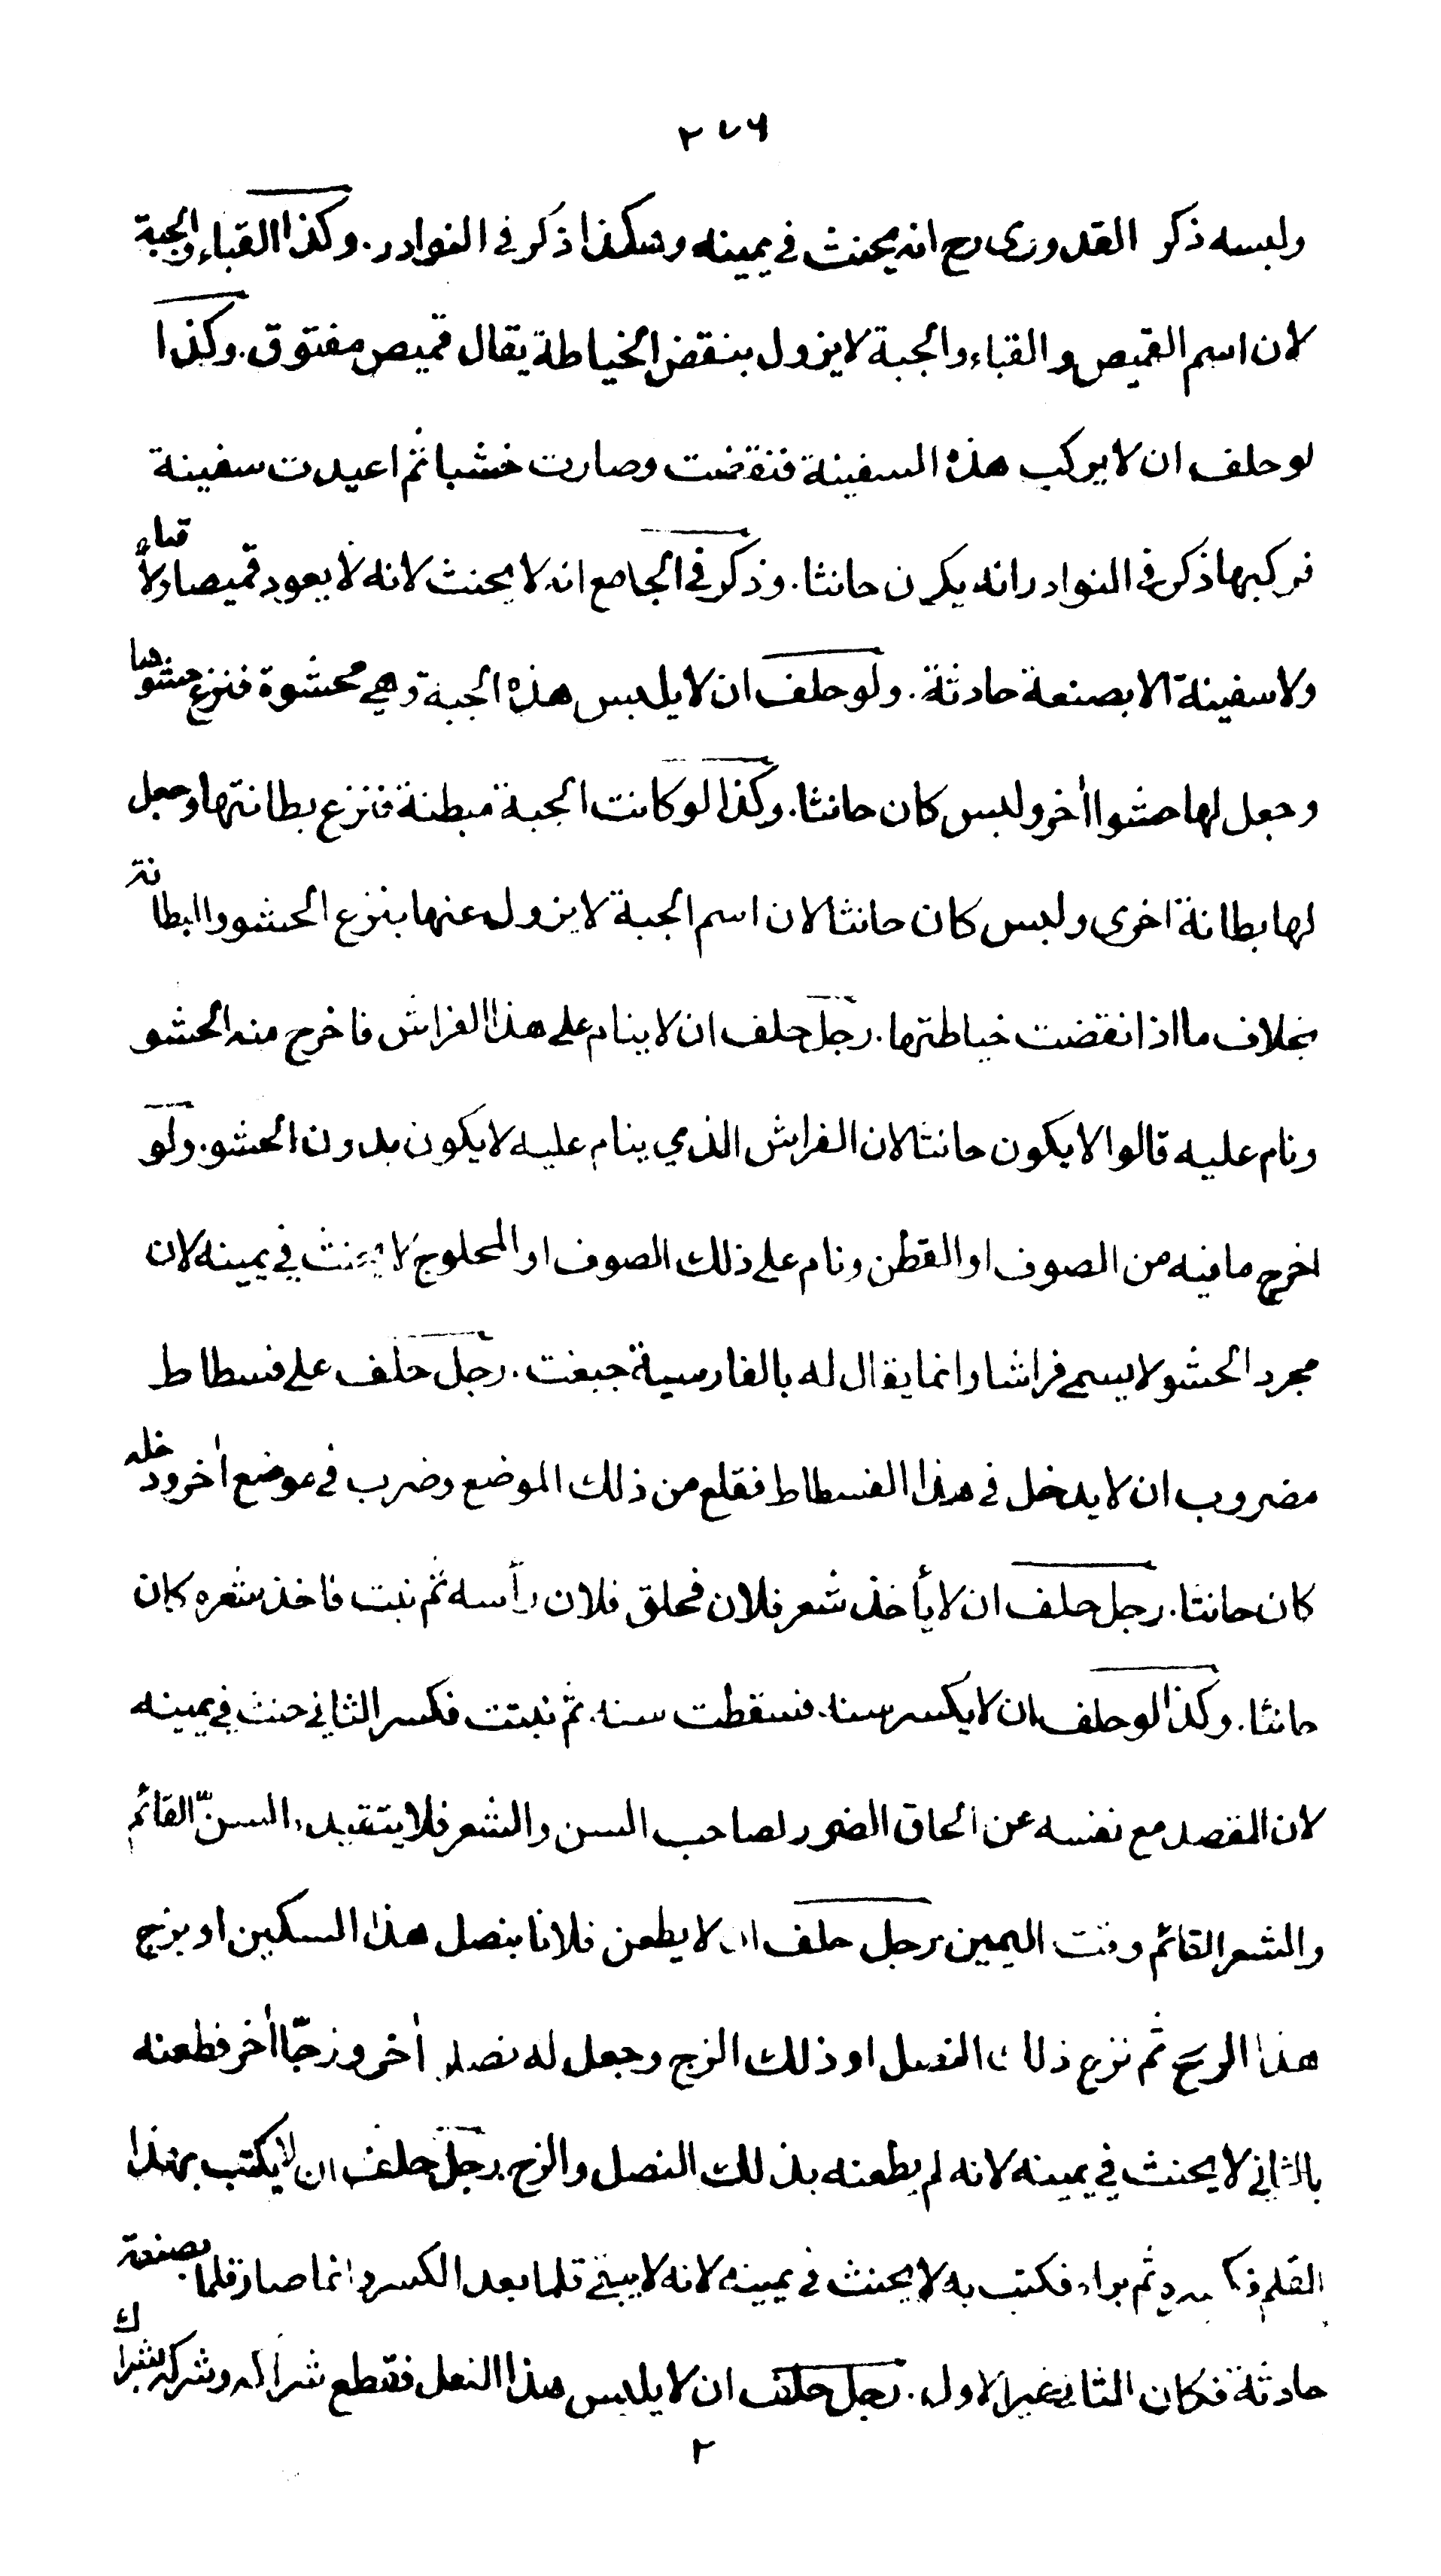 ٢٧٦
ولبسه ذكر القدورى رح انه يحنث فى يمينه وهكذا ذكر فى النوادر. وكذا القباء والجبة
لان اسم القميص والقباء والجبة لا يزول بنقض الخياطة يقال قميص مفتوق. وكذا
لو حلف ان لا يركب هذه السفينة فنقضت وصارت خشبا ثم اعيدت سفينة
فركبها ذكر فى النوادر انه يكون حانثا. وذكر فى الجامع انه لا يحنث لانه لا يعود قميصا ولا قباء
ولا سفينة الا بصنعة حادثة. ولو حلف ان لا يلبس هذه الجبة وهي محشوة فنزع حشوها
وجعل لها حشوا اٰخر ولبس كان حانثا. وكذا لو كانت الجبة مبطنة فنزع بطانتها وجعل
لها بطانة اخرى ولبس كان حانثا لان اسم الجبة لا يزول عنها بنزع الحشو والبطانة
بخلاف ما اذا نقضت خياطتها. رجل حلف ان لا ينام على هذا الفراش فاخرج منه الحشو
ونام عليه قالوا لا يكون حانثا لان الفراش الذي ينام عليه لا يكون بدون الحشو. ولو
اخرج ما فيه من الصوف او القطن ونام على ذلك الصوف او المحلوج لا يحنث في يمينه لان
مجرد الحشو لا يسمى فراشا وانما يقال له بالفارسية جبغت. رجل حلف على فسطاط
مضروب ان لا يدخل فى هذا الفسطاط فقلع من ذلك الموضع وضرب فى موضع اٰخر ودخله
كان حانثا. رجل حلف ان لا يأخذ شعر فلان فحلق فلان رأسه ثم نبت فاخذ شعره كان
حانثا. وكذا لو حلف ان لا يكسر سنه فسقطت سنه ثم نبتت فكسر الثاني حنث في يمينه
لان المقصد مع نفسه عن الحاق الضرر لصاحب السن والشعر فلا يتقيد بالسنّ القائم
والشعر القائم وقت اليمين رجل حلف ان لا يطعن فلانا بنصل هذا السكين او بزج
هذا الرمح ثم نزع ذلك النصل او ذلك الزج وجعل له نصلا اٰخر وزجّا اٰخر فطعنه
بالثاني لا يحنث في يمينه لانه لم يطعنه بذلك النصل والزج. رجل حلف ان لا يكتب بهذا
القلم فكسره ثم براه فكتب به لا يحنث فى يمينه لانه لا يبقى قلما بعد الكسر وانما صار قلما بصنعة
حادثة فكان الثاني غير الاول. رجل حلف ان لا يلبس هذا النعل فقطع شراكه وشركه بشراك
٢